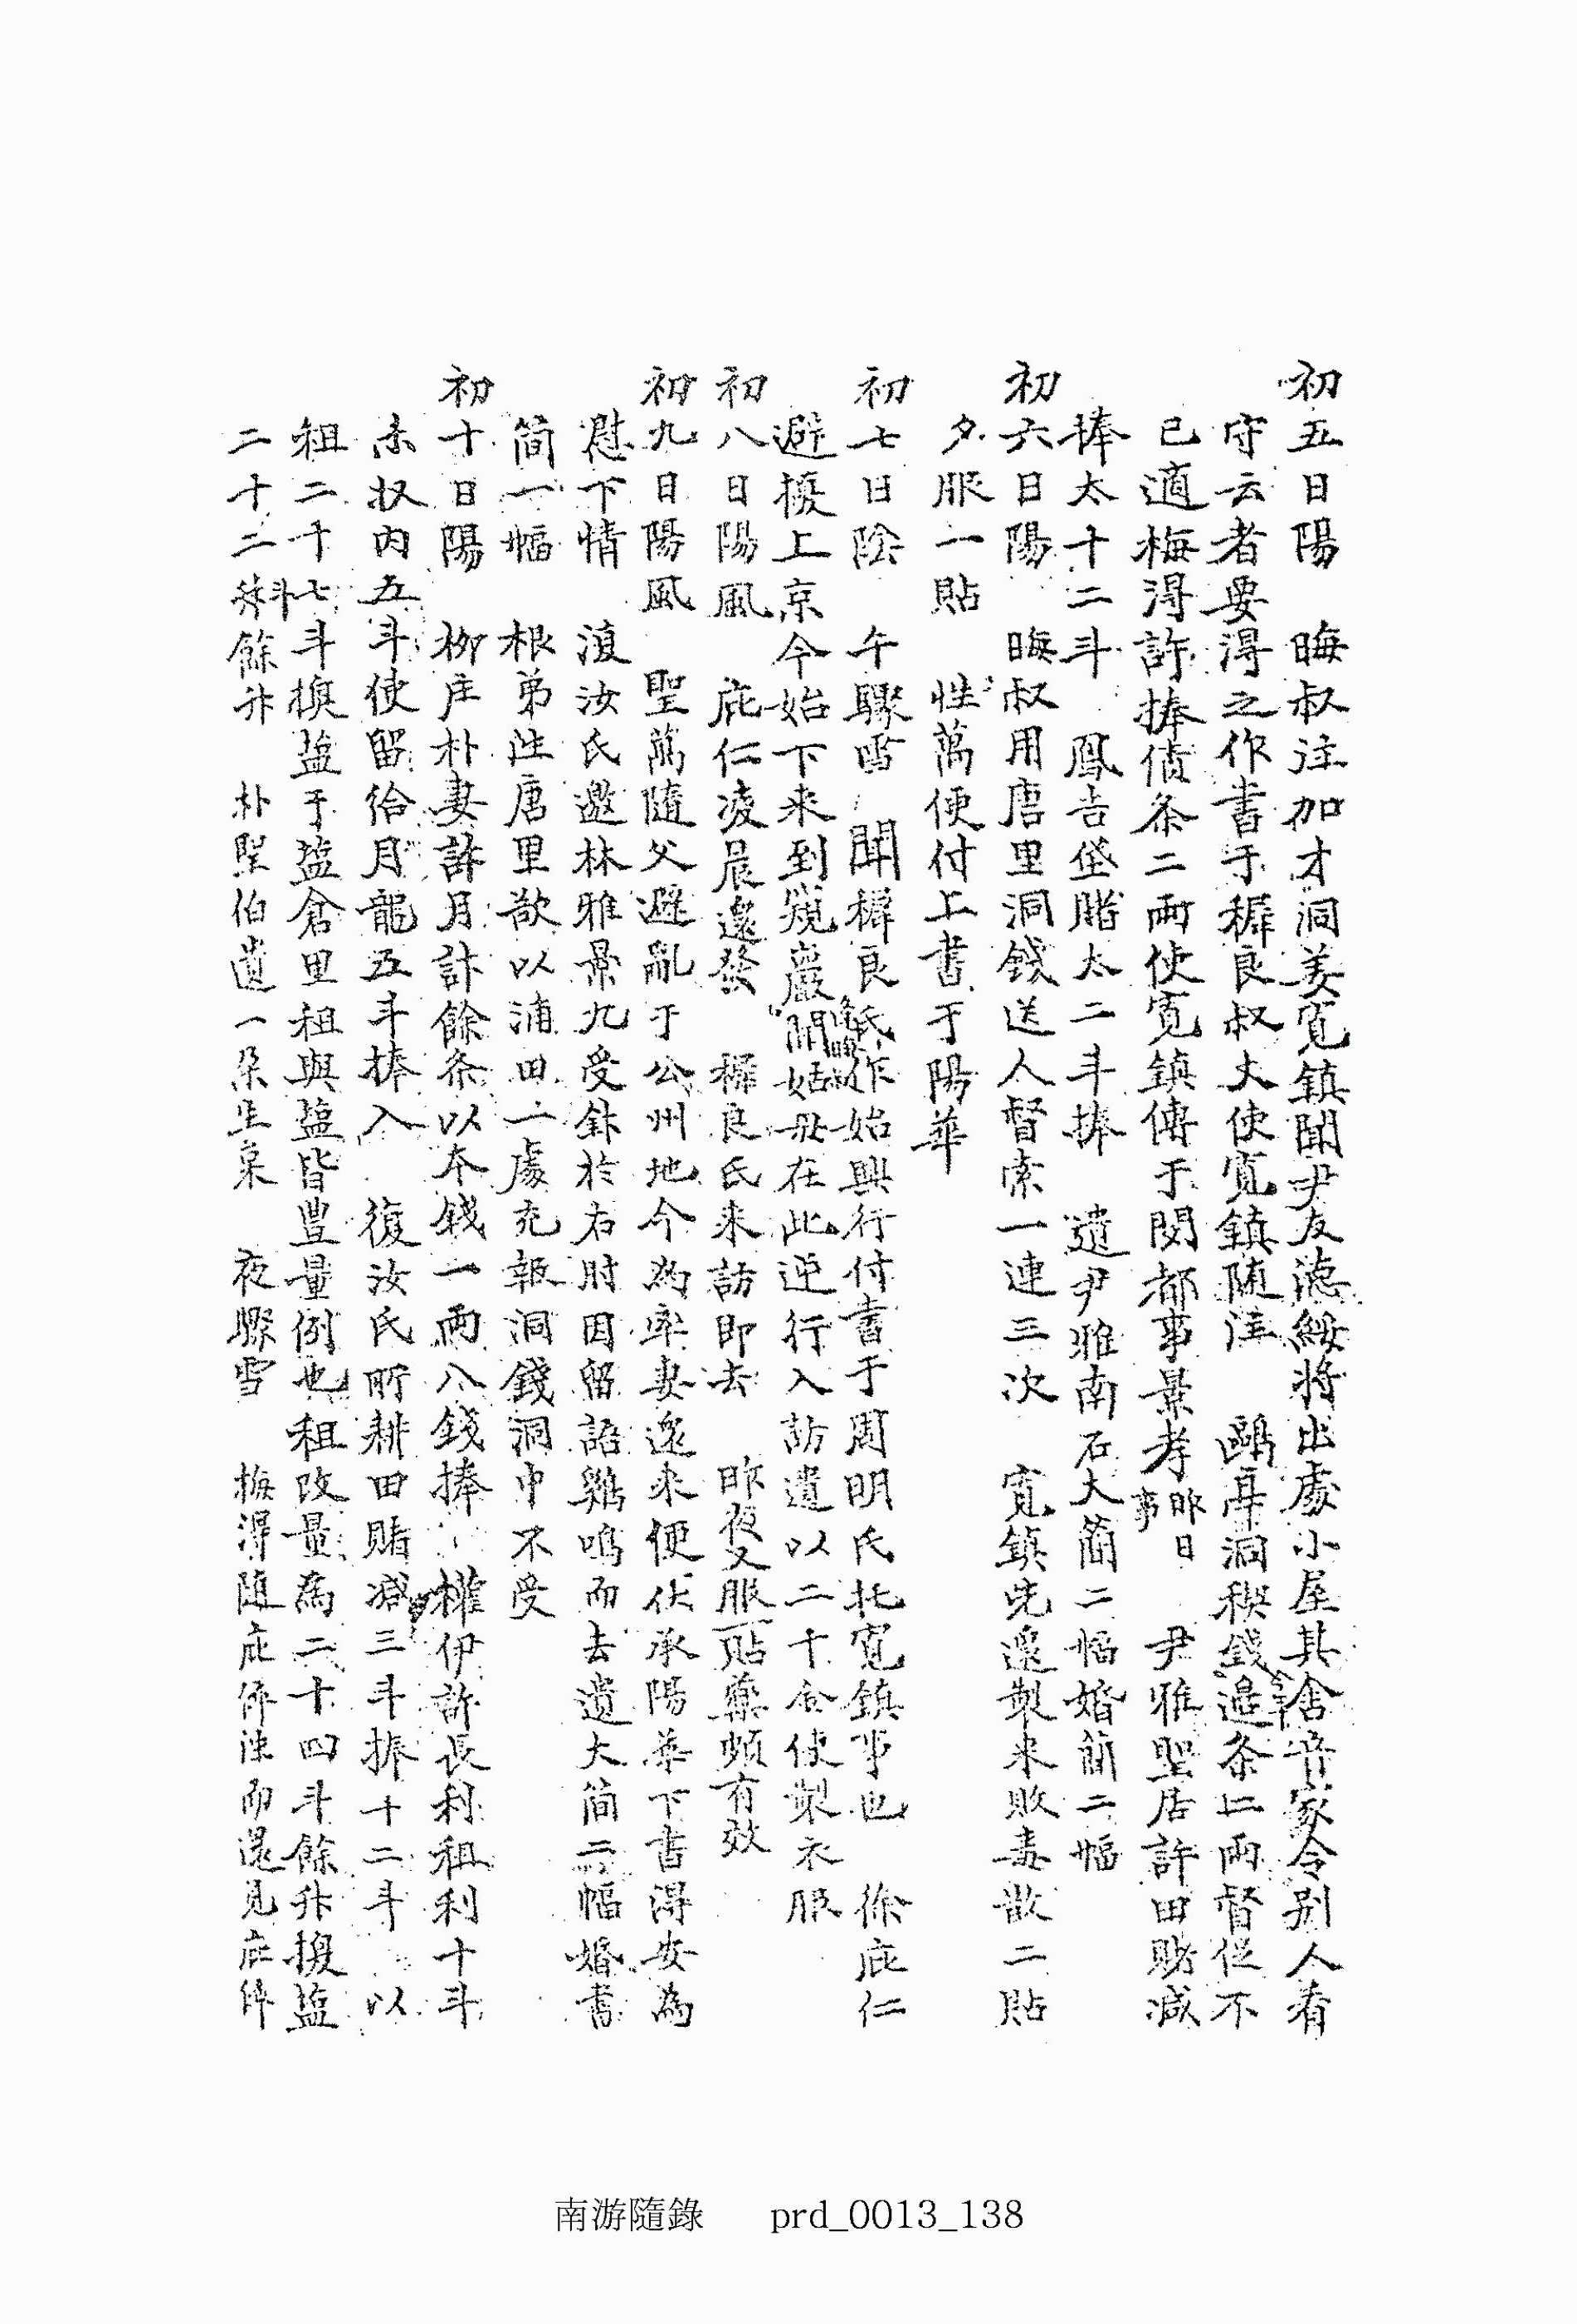 初五日陽 晦叔往加才洞姜寬鎮聞尹友㴃綏將出處小屋其舍音家令別人看
守云者要得之作書于樨良叔丈使寬鎮随往 鷗亭洞稧錢邉条二兩督促不
已適梅淂許捧債条二兩使寬鎮傳于閔都事景孝昨日事 尹雅聖居許田賭减
捧太十二斗 鳳吉垈賭太二斗捧 遺尹雅南石大簡二幅婚簡二幅
初六日陽 晦叔用唐里洞錢送人督索一連三次 寬鎮先還製来敗毒散二貼
夕服一貼 性萬便付上書于陽華
初七日陰 午驟雪 聞樨良氏作始興行付書于周明氏托寬鎮事也 徐庇仁
避擾上京今始下来到窺巖聞姑母在此逆行入訪遺以二十仝使製衣服
初八日陽風 庇仁凌晨還發 樨良氏来訪即去 昨夜又服一貼藥頗有效
初九日陽風 聖萬隨父避亂于公州地今為率妻還来便伏承陽華下書淂安為
慰下情 滇汝氏邀林雅景九受針於右肘因留話鷄鳴而去遺大简二幅婚書
简一幅 根弟往唐里欲以浦田一處充報洞錢洞中不受
初十日陽 柳庄朴妻許月計餘条以本錢一兩八錢捧 權伊許長利租利十斗
未收內五斗使留給月龍五斗捧入 復汝氏所耕田賭减三斗捧十二斗 以
租二十七斗換盐于塩倉里租與塩皆豊量例也租改量為二十四斗餘升換塩
二十二斗餘升 朴聖伯遺一朵生枲 夜驟雪 梅淂随庇倅往而還見庇倅
南游隨錄 prd_0013_138